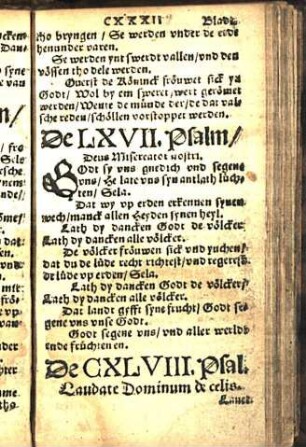 CXXXII Bladt.
tho bryngen / Se werden vnder de erde
henunder varen.
Se werden ynt swerdt vallen / vnd den
vössen tho dele werden.
Querst de Köninck fröuwet sick yn
Godt / Wol by em sweret / wert gerömet
werden / Wente de münde der / de dar val-
sche reden / schöllen vorstoppet werden.
De LXVII. Psalm /
Deus Misereatur nostri.
Godt sy vns gnedich vnd segene
vns / He late vns syn antlath lüch-
ten / Sela.
Dat wy vp erden erkennen synen
wech / manck allen Heyden synen heyl.
Lath dy dancken Godt de völcker
Lath dy dancken alle völcker.
De völcker fröuwen sick vnd yuchen /
dat du de lüde recht richtest / vnd regerest
de lüde vp erden / Sela.
Lath dy dancken Godt de völcker /
Lath dy dancken alle völcker.
Dat landt gifft syne frucht / Godt se-
gene vns vnse Godt.
Godt segene vns / vnd aller werldt
ende früchten en.
De CXLVIII. Psal.
Laudate Dominum de celis.
Lauet